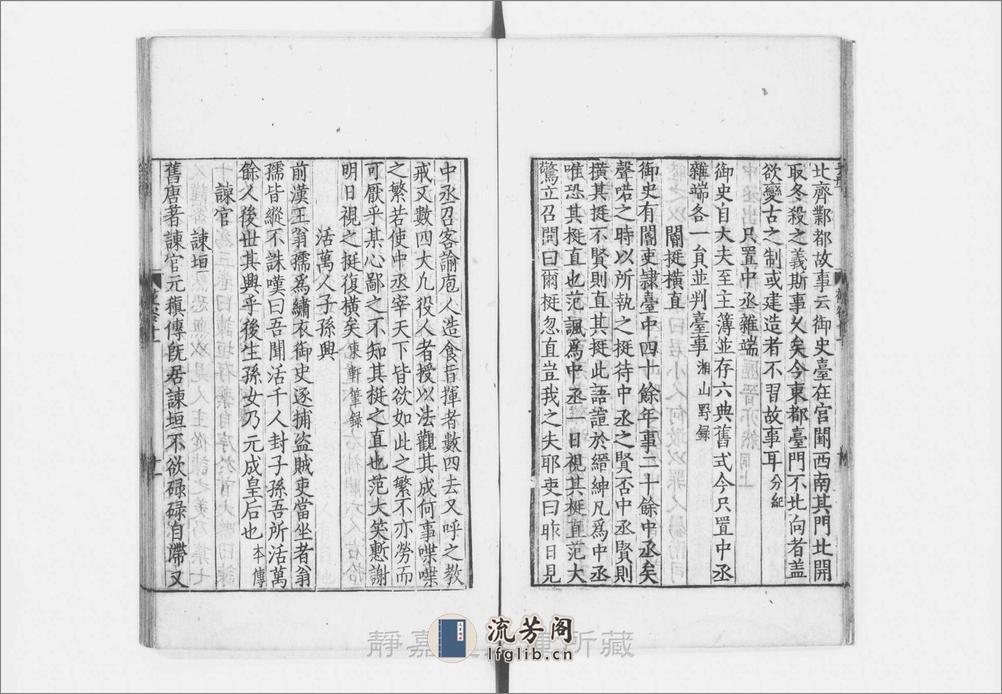 北齊鄴都故事云御史臺在宫闕西南其門北開
取冬殺之義斯事久矣今東都臺門不北向者蓋
欲變古之制或建造者不習故事耳分紀
只置中丞雜端
御史自大夫至主簿並存六典舊式今只置中丞
雜端各一員並判臺事湘山野録
閽挺橫直
御史有閽吏隷臺中四十餘年事二十餘中丞矣
聲喏之時以所執之挺待中丞之賢否中丞賢則
橫其挺不賢則直其挺此語諠於縉紳凡爲中丞
唯恐其挺直也范諷爲中丞一日視其挺直范大
驚立召問曰爾挺忽直豈我之失耶吏曰昨日見
中丞召客諭庖人造食指揮者數四去又呼之敎
戒又數四大凡役人者授以法觀其成何事喋喋
之繁若使中丞宰天下皆欲如此之繁不亦勞而
可厭乎某心鄙之不知其挺之直也范大笑慙謝
明日視之挺復橫矣東軒筆録
活萬人子孫興
前漢王翁孺爲繡衣御史逐捕盜賊吏當坐者翁
孺皆縱不誅嘆曰吾聞活千人封子孫吾所活萬
餘人後世其興乎後生孫女乃元成皇后也本傳
諫官
諫垣
舊唐著諫官元稹傳旣居諫垣不欲碌碌自滯又
靜嘉
所藏
流芳阁
lfglib.cn